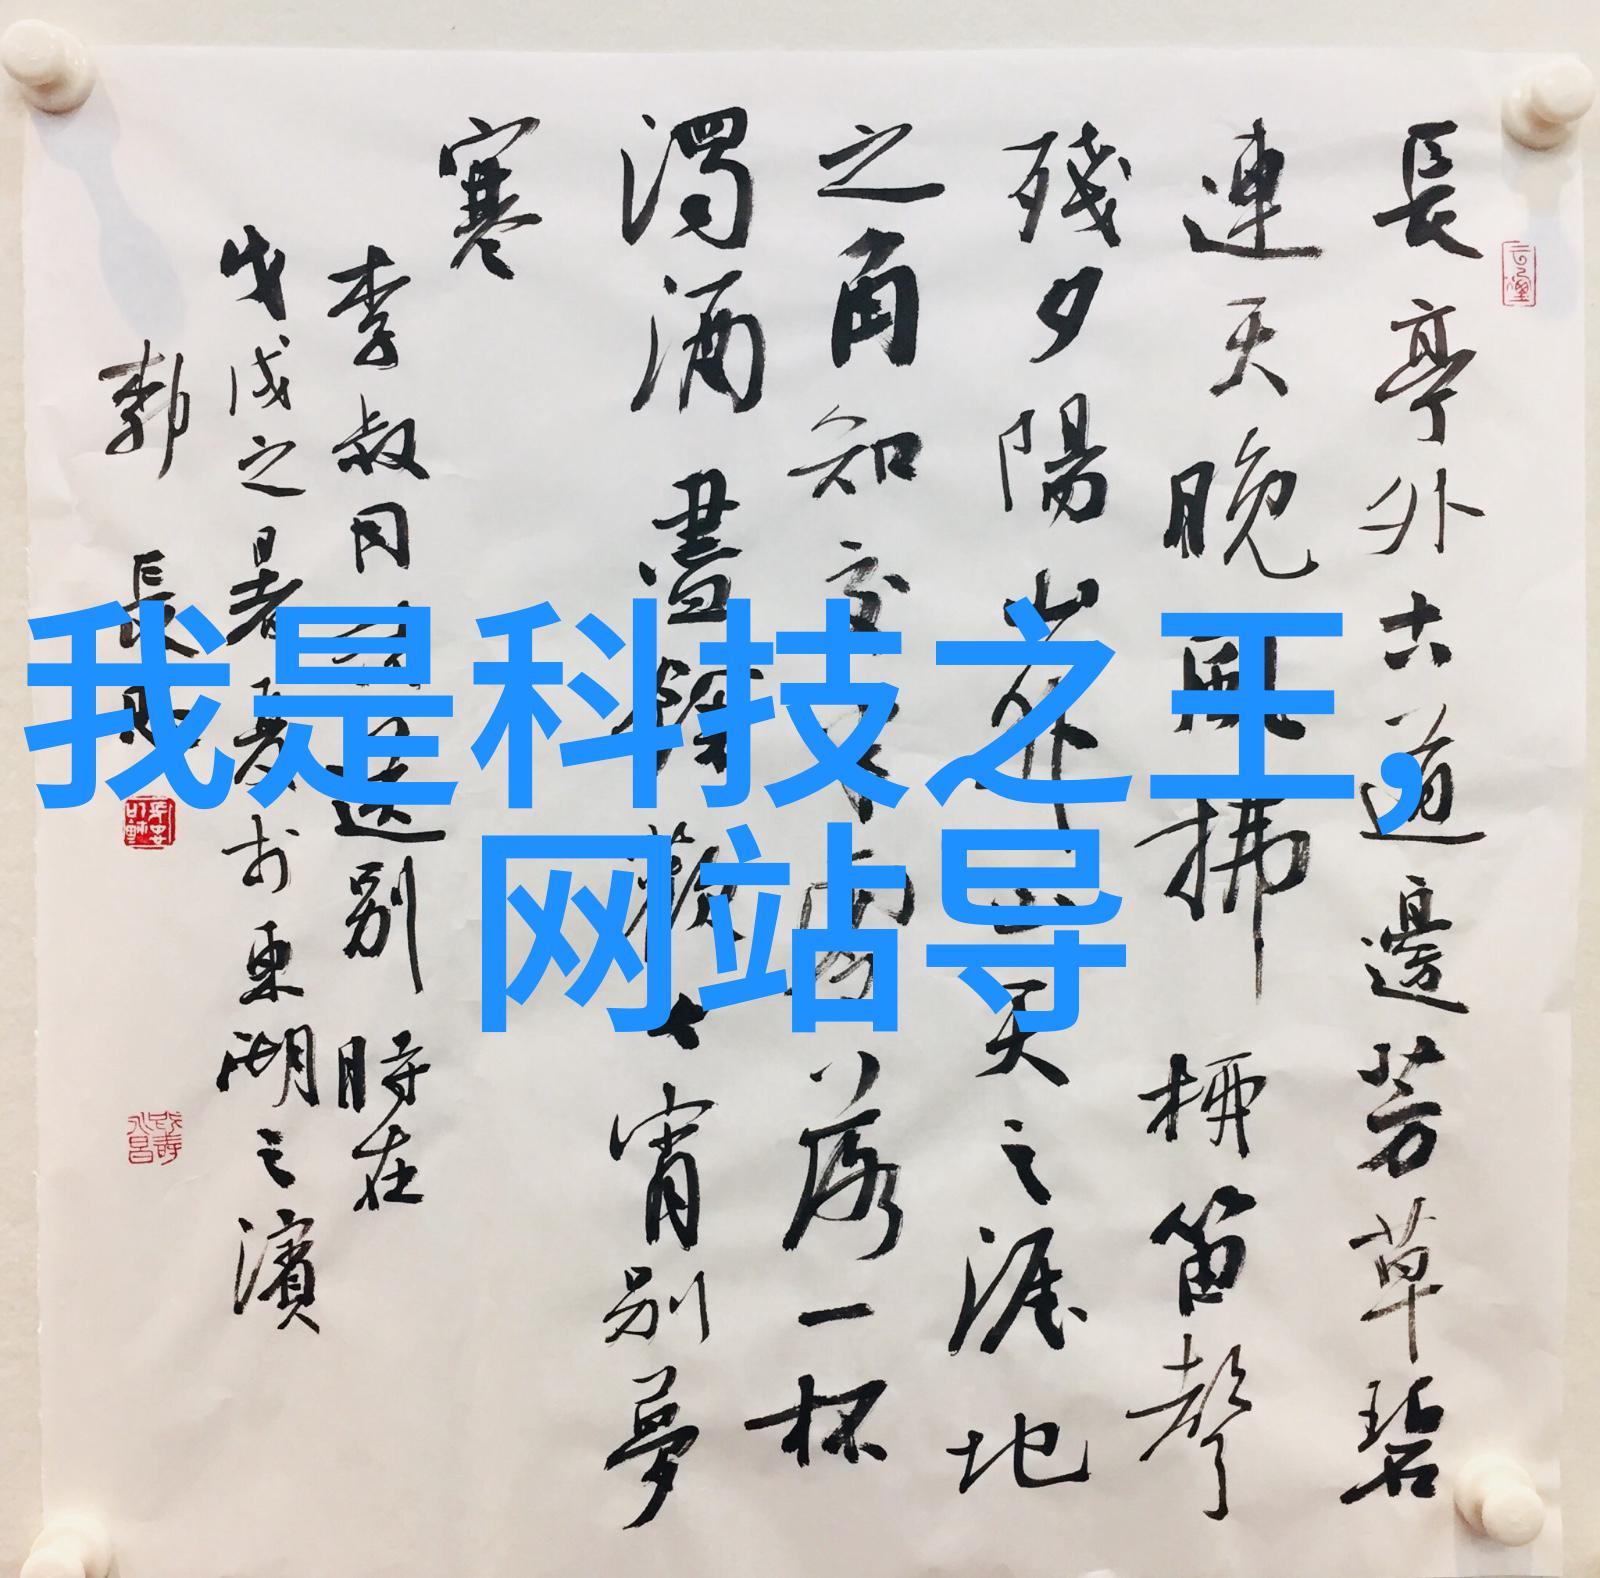 長亭外古道邊芳草碧
連天晚風拂柳笛聲
殘夕陽山外山天之涯地
之角知交半零落一杯
濁酒盡餘歡今宵別夢
寒
李叔同 送別 時在
戊戌之暑 於東湖之濱
郭長
我是科技之王,
网站导